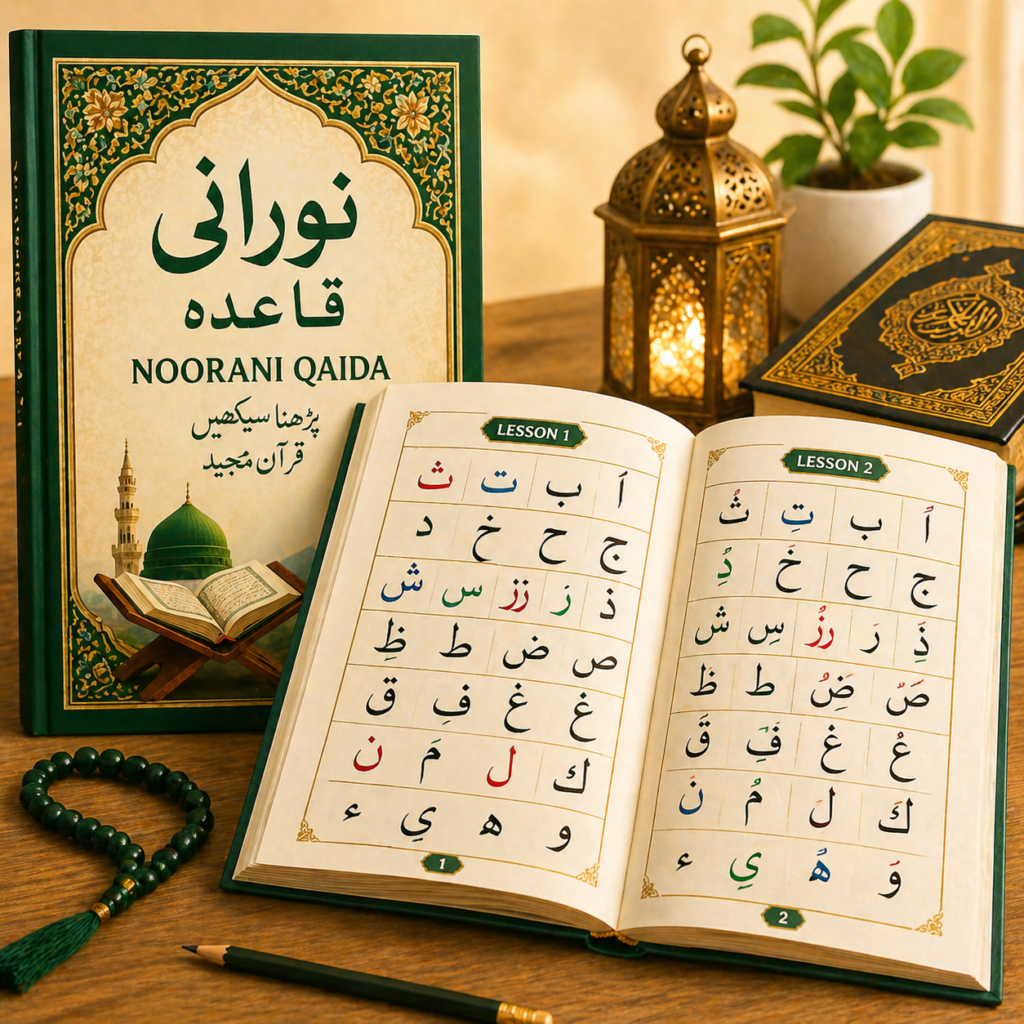 نورانی
قاعده
NOORANI QAIDA
پڑھنا سیکھیں
قرآن مجید
LESSON 1
أ ب ت ث
ج ح خ د
ذ ز زز س ش
ص ض ط ظِ
غ غ فِ ق
ك ل مَ ن
و ه يِ ء
1
LESSON 2
اً ب تِ ثُ
ج ح خَ دُِ
ذَِ رَ رزُ سِ ش
صّ ضُ ط ظ
عُ غ فَ قَ
كَ لَ مُ نَ
وَ هُ يِ ء
2